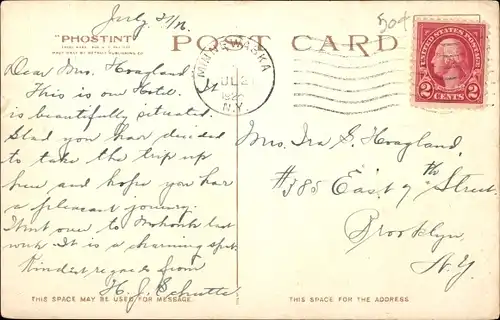 July 21/2
"PHOSTINT"
POST CARD
50¢
Dear Mrs. Hoagland
This is our Hotel. It
is beautifully situated.
Glad you have decided
to take the trip up
here and hope you have
a pleasant journey.
Went over to Mohonk last
week It is a charming spot.
Kindest regards from
H. J. Schutte
MINNEWASKA
JUL 21
N.Y.
UNITED STATES POSTAGE
2 CENTS 2
Mrs. Ira G. Hoagland,
#385 East 7th Street.
Brooklyn,
N.Y.
THIS SPACE MAY BE USED FOR MESSAGE.
THIS SPACE FOR THE ADDRESS.